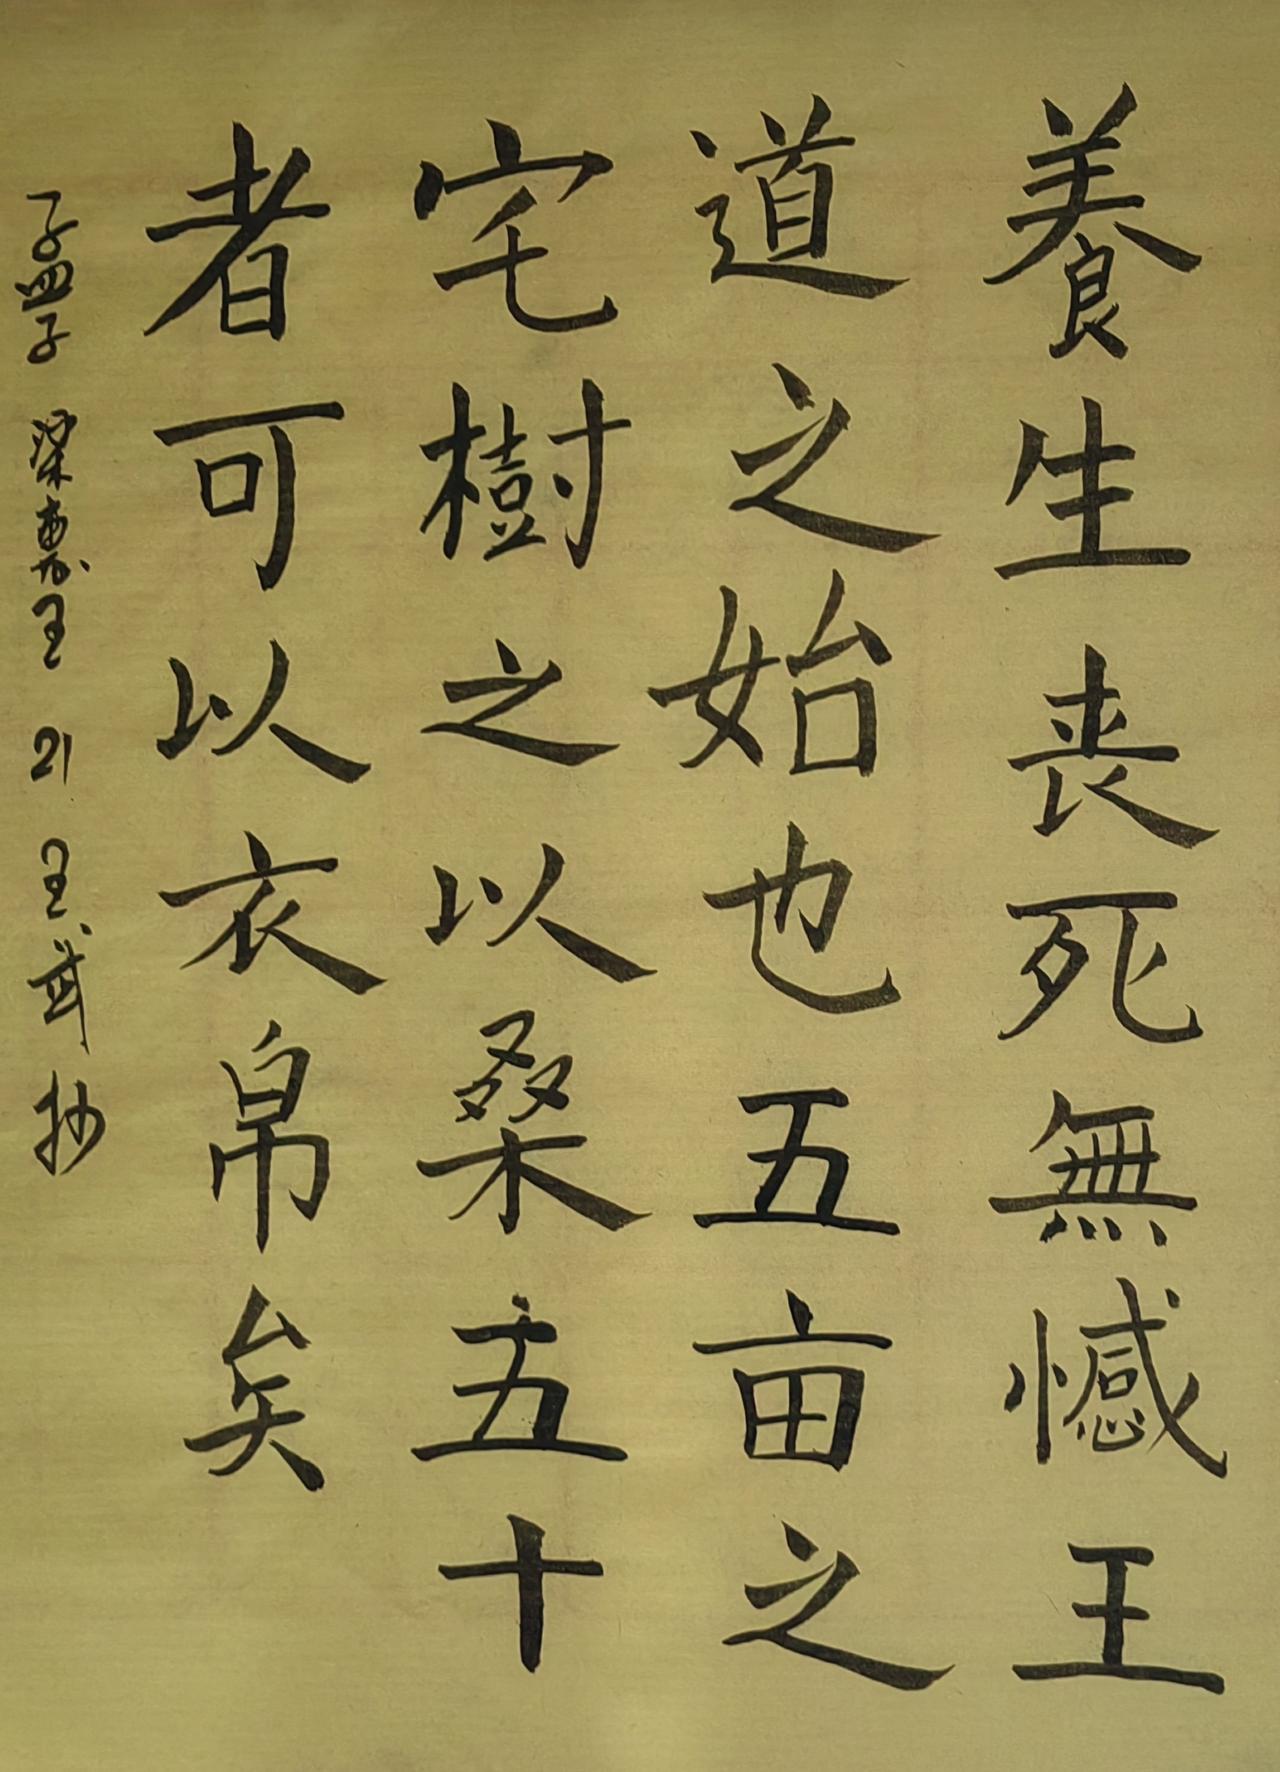 養生丧死無憾王
道之始也五亩之
宅樹之以桑五十
者可以衣帛矣
孟子 梁惠王 21 王武抄